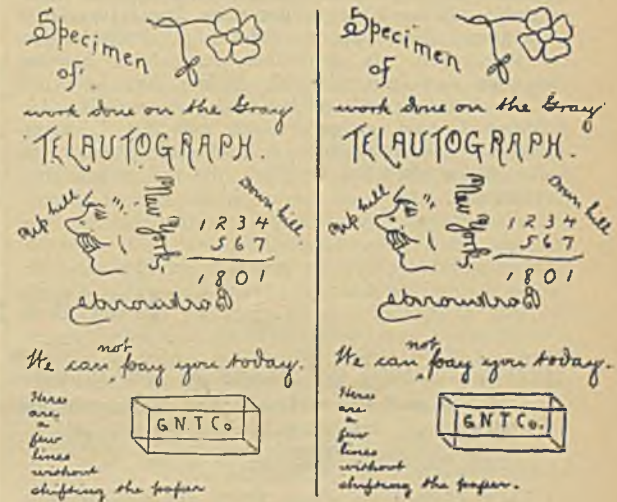 Specimen
of
work done on the Gray
TELAUTOGRAPH.
Up hill
New York.
Down hill.
1234
567
1801
Backwards
not
We can pay you today.
Here
are
a
few
lines
without
shifting the paper
G.N.T Co
Specimen
of
work done on the Gray
TELAUTOGRAPH.
Up hill
New York.
Down hill.
1234
567
1801
Backwards
not
We can pay you today.
Here
are
a
few
lines
without
shifting the paper.
G.N.T Co.